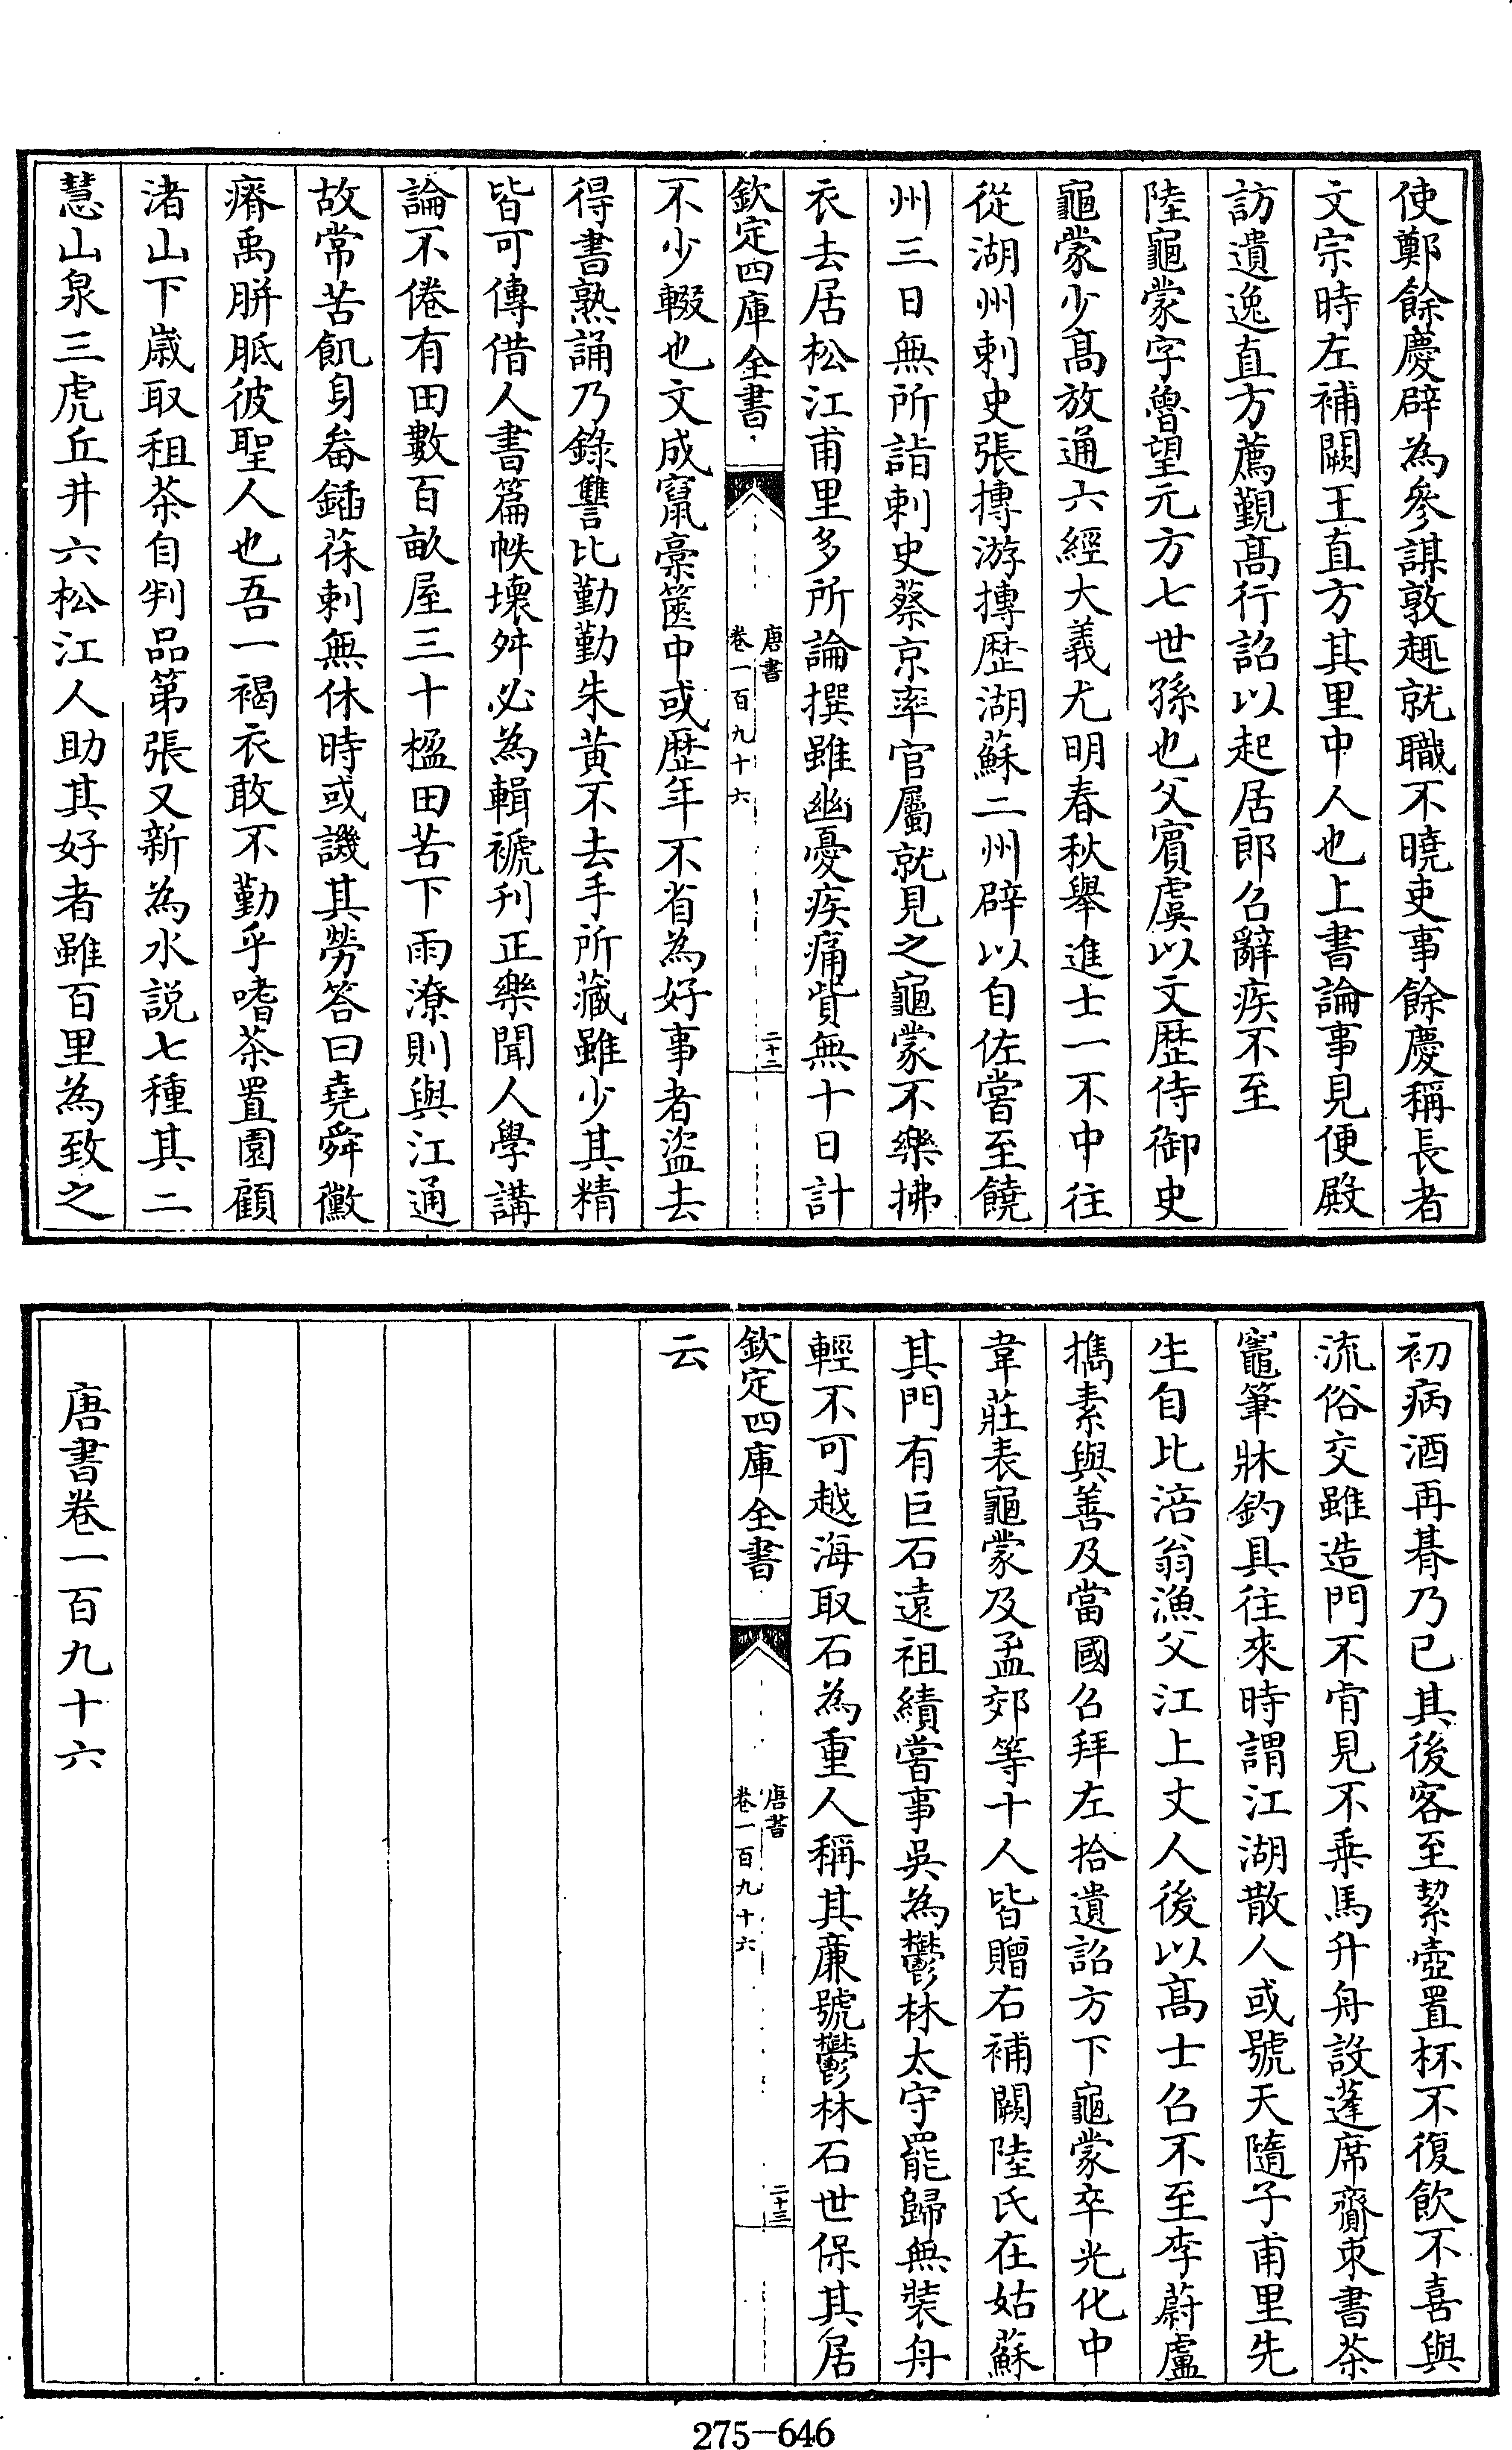 使鄭餘慶辟為參謀敦趣就職不曉吏事餘慶稱長者
文宗時左補闕王直方其里中人也上書論事見便殿
訪遺逸直方薦覲髙行詔以起居郎召辭疾不至
陸龜蒙字魯望元方七世孫也父賓虞以文歴侍御史
龜蒙少髙放通六經大義尤明春秋舉進士一不中往
從湖州刺史張摶游摶歴湖蘇二州辟以自佐嘗至饒
州三日無所詣刺史蔡京率官屬就見之龜蒙不樂拂
衣去居松江甫里多所論撰雖幽憂疾痛貲無十日計
欽定四庫全書
唐書
卷一百九十六
二十二
不少輟也文成竄稾篋中或歴年不省為好事者盜去
得書熟誦乃錄讐比勤勤朱黃不去手所藏雖少其精
皆可傳借人書篇帙壞舛必為輯褫刊正樂聞人學講
論不倦有田數百畝屋三十楹田苦下雨潦則與江通
故常苦飢身畚鍤茠刺無休時或譏其勞答曰堯舜黴
瘠禹胼胝彼聖人也吾一褐衣敢不勤乎嗜茶置園顧
渚山下歳取租茶自判品第張又新為水説七種其二
慧山泉三虎丘井六松江人助其好者雖百里為致之
初病酒再朞乃已其後客至絜壺置杯不復飲不喜與
流俗交雖造門不肯見不乗馬升舟設蓬席齎束書茶
竈筆牀釣具往來時謂江湖散人或號天隨子甫里先
生自比涪翁漁父江上丈人後以髙士召不至李蔚盧
擕素與善及當國召拜左拾遺詔方下龜蒙卒光化中
韋莊表龜蒙及孟郊等十人皆贈右補闕陸氏在姑蘇
其門有巨石遠祖績嘗事吳為鬱林太守罷歸無裝舟
輕不可越海取石為重人稱其亷號鬱林石世保其居
欽定四庫全書
唐書
卷一百九十六
二十三
云
唐書卷一百九十六
275-646